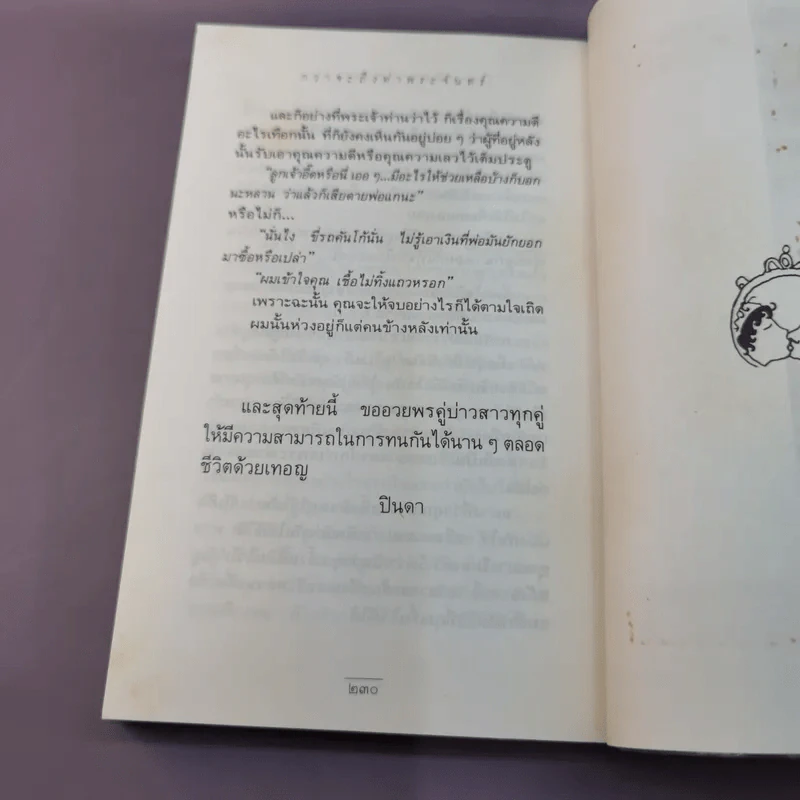 กว่าจะถึงท่าพระจันทร์
และก็อย่างที่พระเจ้าท่านว่าไว้ ก็เรื่องคุณความดี
อะไรเทือกนั้น ที่ก็ยังคงเห็นกันอยู่บ่อย ๆ ว่าผู้ที่อยู่หลัง
นั้นรับเอาคุณความดีหรือคุณความเลวไว้เต็มประตู
"ลูกเจ้าอี๊ดหรือนี่ เออ ๆ...มีอะไรให้ช่วยเหลือบ้างก็บอก
นะหลาน ว่าแล้วก็เสียดายพ่อแกนะ"
หรือไม่ก็...
"นั่นไง ขี่รถคันโก้นั่น ไม่รู้เอาเงินที่พ่อมันยักยอก
มาซื้อหรือเปล่า"
"ผมเข้าใจคุณ เชื้อไม่ทิ้งแถวหรอก"
เพราะฉะนั้น คุณจะให้จบอย่างไรก็ได้ตามใจเถิด
ผมนั้นห่วงอยู่ก็แต่คนข้างหลังเท่านั้น
และสุดท้ายนี้ ขออวยพรคู่บ่าวสาวทุกคู่
ให้มีความสามารถในการทนกันได้นาน ๆ ตลอด
ชีวิตด้วยเทอญ
ปินดา
๒๓๐